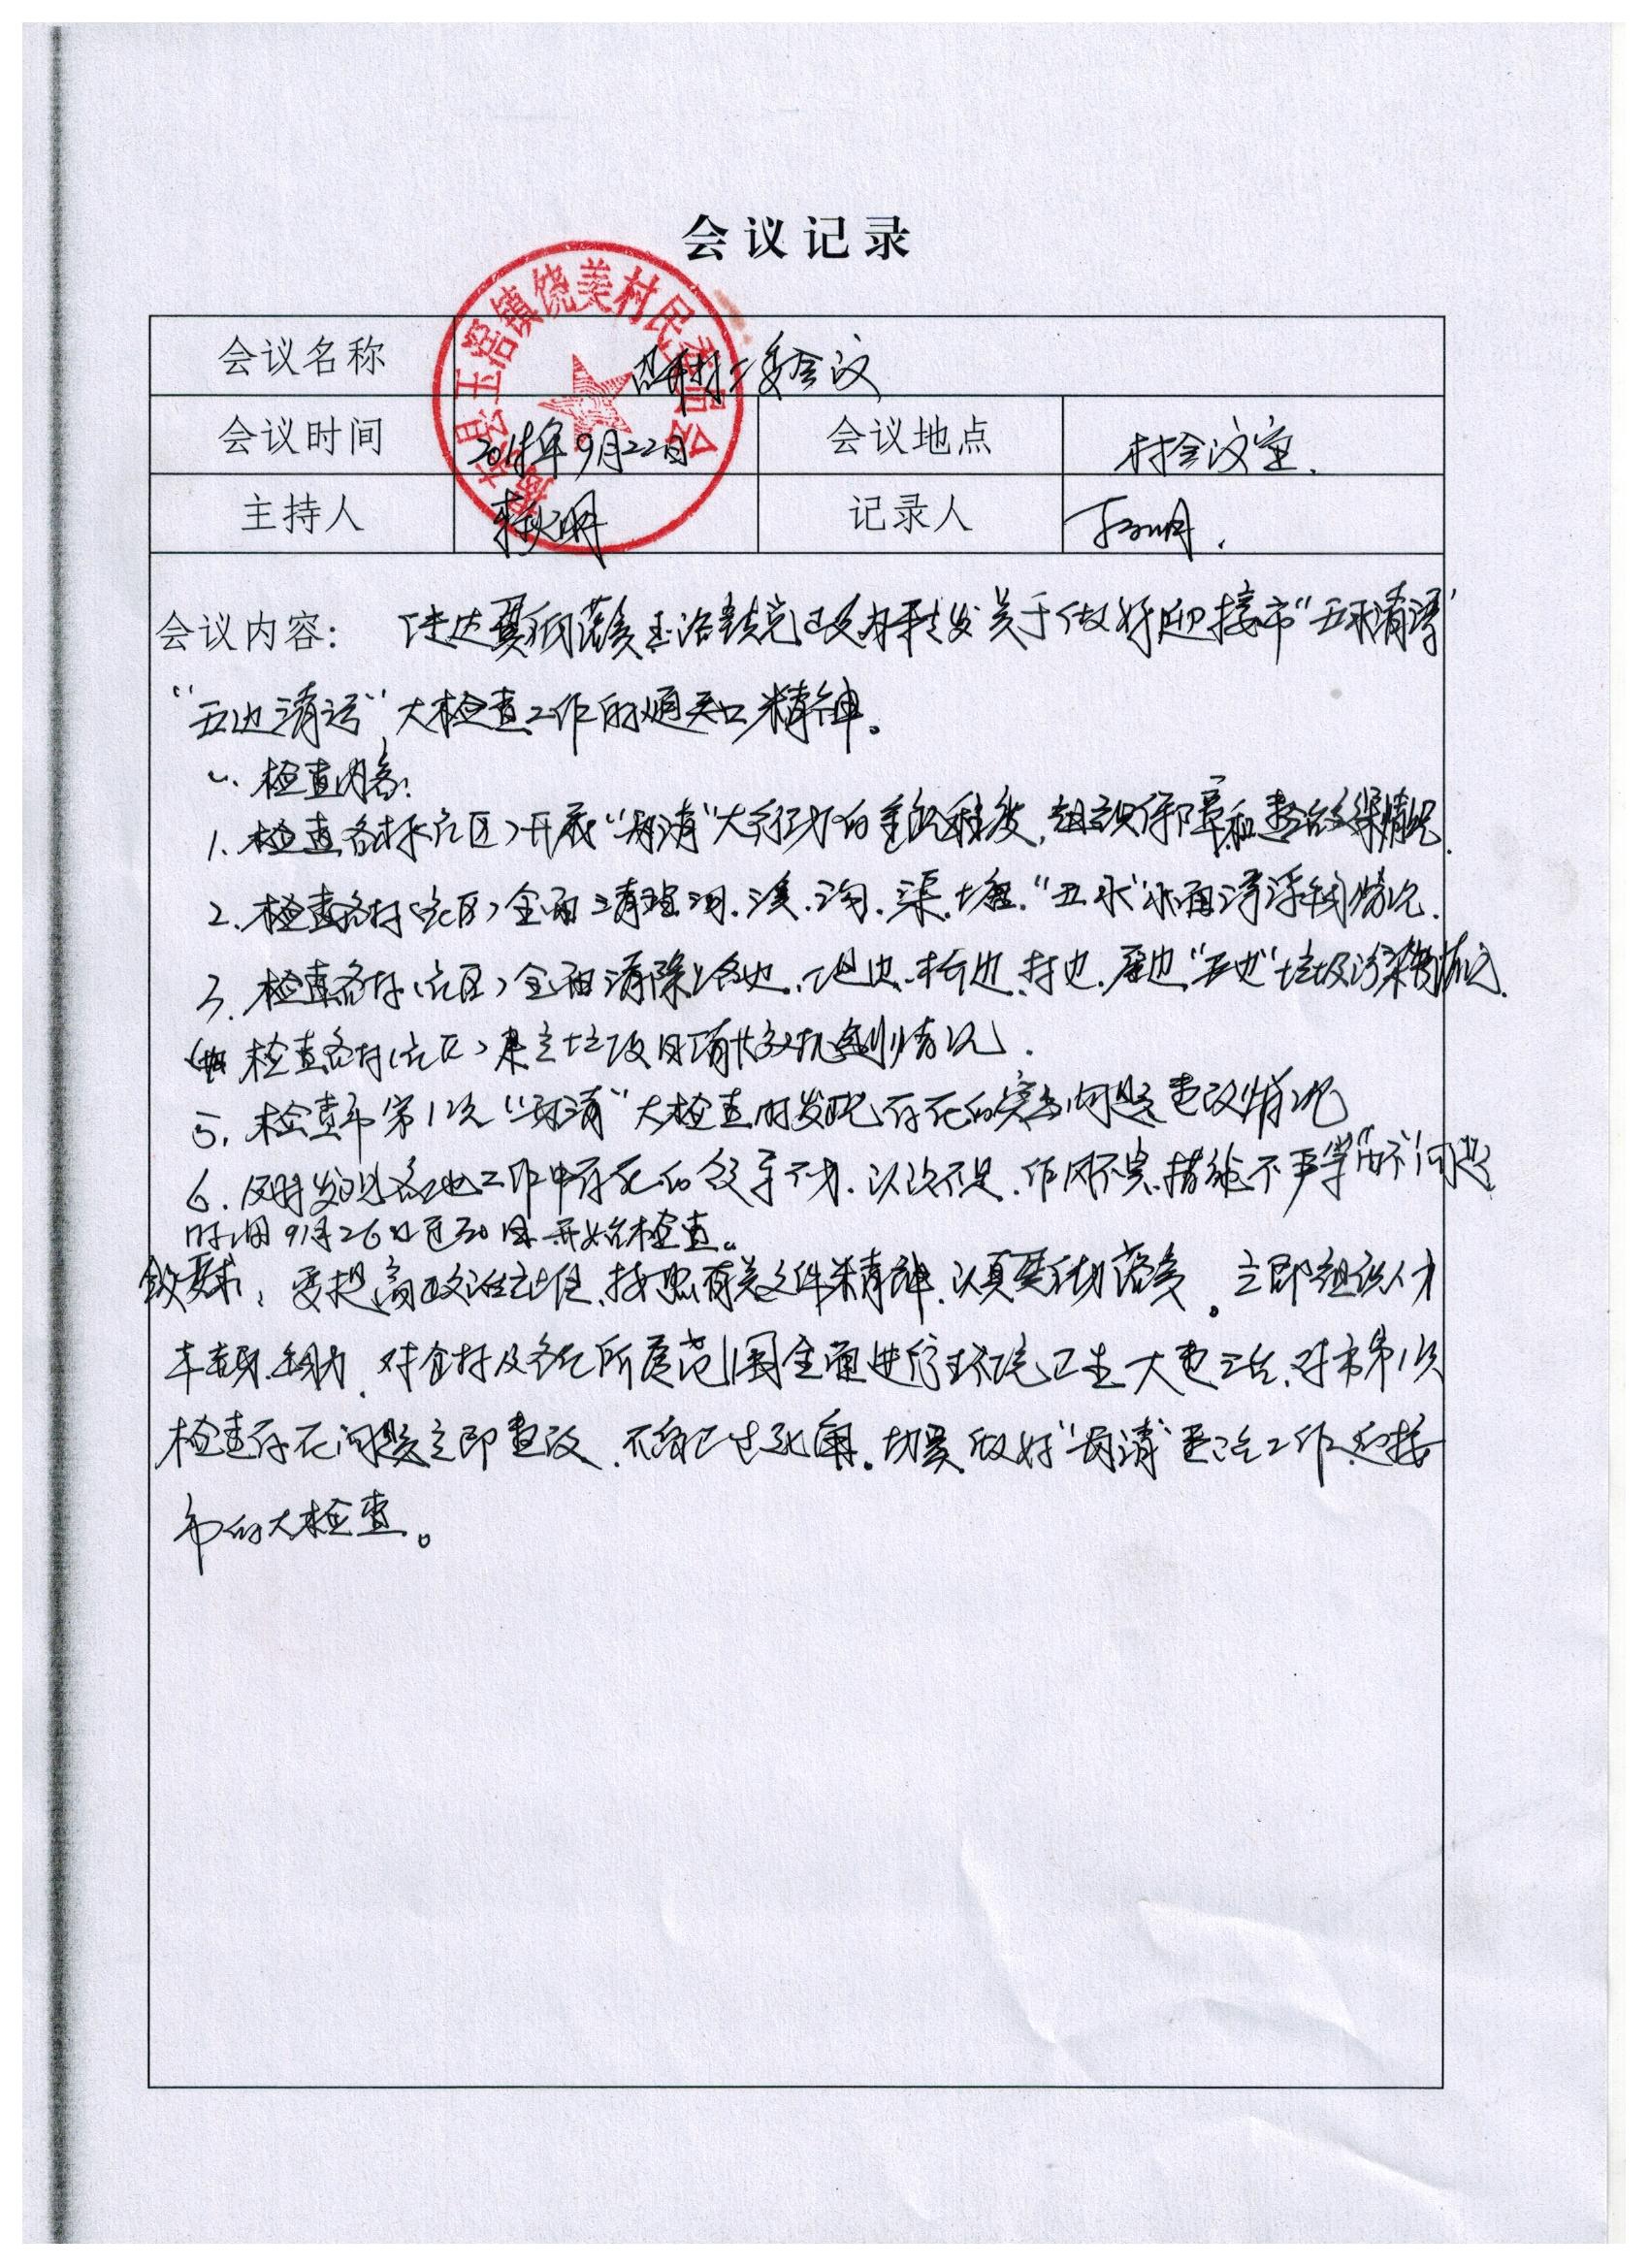 会议记录
揭东县玉窖镇饶美村民委员会
会议名称 召开村二委会议
会议时间 2014年9月22日 会议地点 村会议室.
主持人 记录人
会议内容: 传达贯彻落实玉窖镇党政办转发关于做好迎接市"五水清漂"
"五边清污"大检查工作的通知精神。
一. 检查内容:
1. 检查各村(社区)开展"两清"大行动的重视程度,组织保障和整治效果情况.
2. 检查各村(社区)全面清理河.溪.沟.渠.塘."五水"水面漂浮物情况.
3. 检查各村(社区)全面清除路边.堤边.桥边.村边.屋边"五边"垃圾污染物情况.
4. 检查各村(社区)建立垃圾日清长效机制情况.
5. 检查市第1次"两清"大检查时发现存在的突出问题整改情况
6. 及时发现各地工作中存在的领导不力.认识不足.作风不实.措施不严等"四不"问题
时间 9月26日至30日开始检查。
会议要求: 要提高政治责任,按照有关文件精神,认真贯彻落实。立即组织人力
车辆., 对全村及各自所属范围全面进行环境卫生大整治,对市第1次
检查存在问题立即整改,不留卫生死角。切实做好"两清"整治工作迎接
市的大检查。